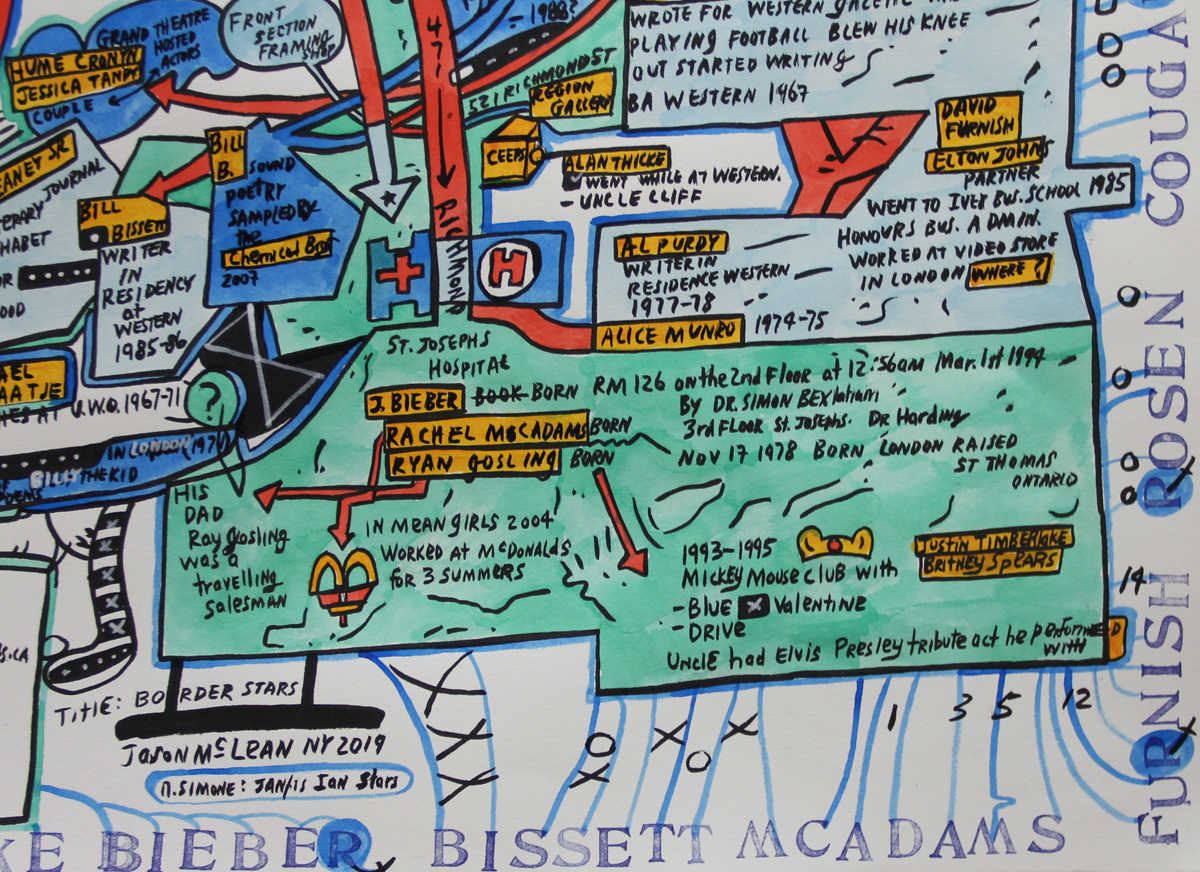 GRAND THEATRE
HOSTED
ACTORS
HUME CRONYN
JESSICA TANDY
COUPLE
FRONT
SECTION
FRAMING
SHOP
1988?
47
521 RICHMOND ST
REGION
GALLERY
WROTE FOR WESTERN GAZETTE
PLAYING FOOTBALL BLEW HIS KNEE
OUT STARTED WRITING
BA WESTERN 1967
CEEPS
ALAN THICKE
WENT WHILE AT WESTERN.
- UNCLE CLIFF
DAVID
FURNISH
ELTON JOHNS
PARTNER
WENT TO IVEY BUS. SCHOOL 1985
HONOURS BUS. ADMIN.
WORKED AT VIDEO STORE
IN LONDON WHERE?
EANEY SR
JOURNAL
ERARY
HABET
OR
OOD
BILL
B. SOUND
POETRY
SAMPLED BY
the
Chemical Brot
2007
BILL
BISSETT
WRITER
IN
RESIDENCY
at
WESTERN
1985-86
RICHMOND
H
AL PURDY
WRITER IN
RESIDENCE WESTERN
1977-78
ALICE MUNRO 1974-75
AEL
AATJE
HES AT U.W.O. 1967-71
?
IN LONDON (1970)
BILLY THE KID
OF
POEMS
ST. JOSEPHS
HOSPITAL
J. BIEBER BOOK BORN RM 126 on the 2nd Floor at 12:56am Mar. 1st 1994
BY DR. SIMON
RACHEL MCADAMS BORN 3rd FLOOR ST. JOSEPHS. DR Harding
RYAN GOSLING BORN NOV 17 1978 BORN LONDON RAISED
ST THOMAS
ONTARIO
HIS
DAD
Ray gosling
was a
travelling
salesman
IN MEAN GIRLS 2004
WORKED AT McDONALDS
FOR 3 SUMMERS
1993-1995
MICKEY MOUSE CLUB WITH
JUSTIN TIMBERLAKE
BRITNEY SPEARS
- BLUE X Valentine
- DRIVE
UNCLE had ELVIS Presley tribute act he performed
with
S.CA
TITLE: BORDER STARS
JASON McLEAN NY 2019
N. SIMONE: JANIS IAN Stars
1 3 5 12
14
KE BIEBER BISSETT MCADAMS
FURNISH ROSEN COUGA